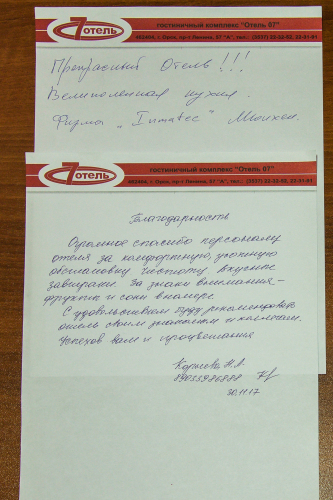 7 отель
гостиничный комплекс "Отель 07"
462404, г. Орск, пр-т Ленина, 57 "А", тел.: (3537)
Прекрасный Отель!!!
Великолепная кухня.
Фирма „Inmatec" Мюнхен.
7 отель
гостиничный комплекс "Отель 07"
462404, г. Орск, пр-т Ленина, 57 "А", тел.: (3537)
Благодарность
Огромное спасибо персоналу
отеля за комфортную, уютную
обстановку чистоту вкусные
завтраки. За знаки внимания -
фрукты и соки в номере.
С удовольствием буду рекомендовать
отель своим знакомым и коллегам.
Успехов вам и процветания
Н.А.
30.11.17